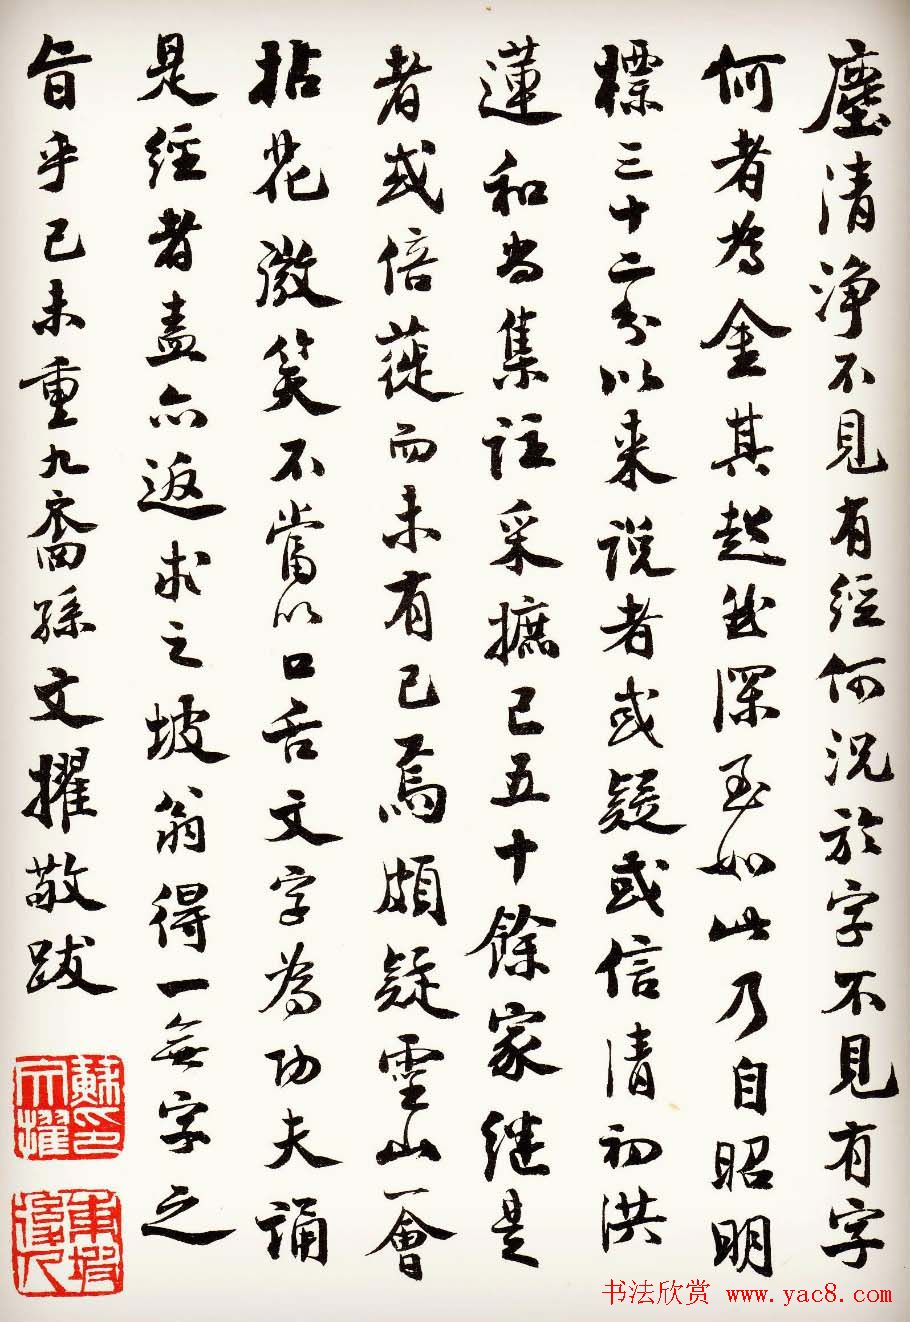 塵清淨不見有經何況於字不見有字
何者為金其起我深至如此乃自昭明
標三十二分以來說者或疑或信清初洪
蓮和尚集註采摭已五十餘家继是
者或倍蓰而未有已焉頗疑靈山一會
拈花微笑不當以口舌文字為功夫誦
是經者盍亦返求之坡翁得一無字之
旨乎已未重九裔孫文擢敬跋
蘇文擢印
東坡裔人
书法欣赏 www.yac8.com